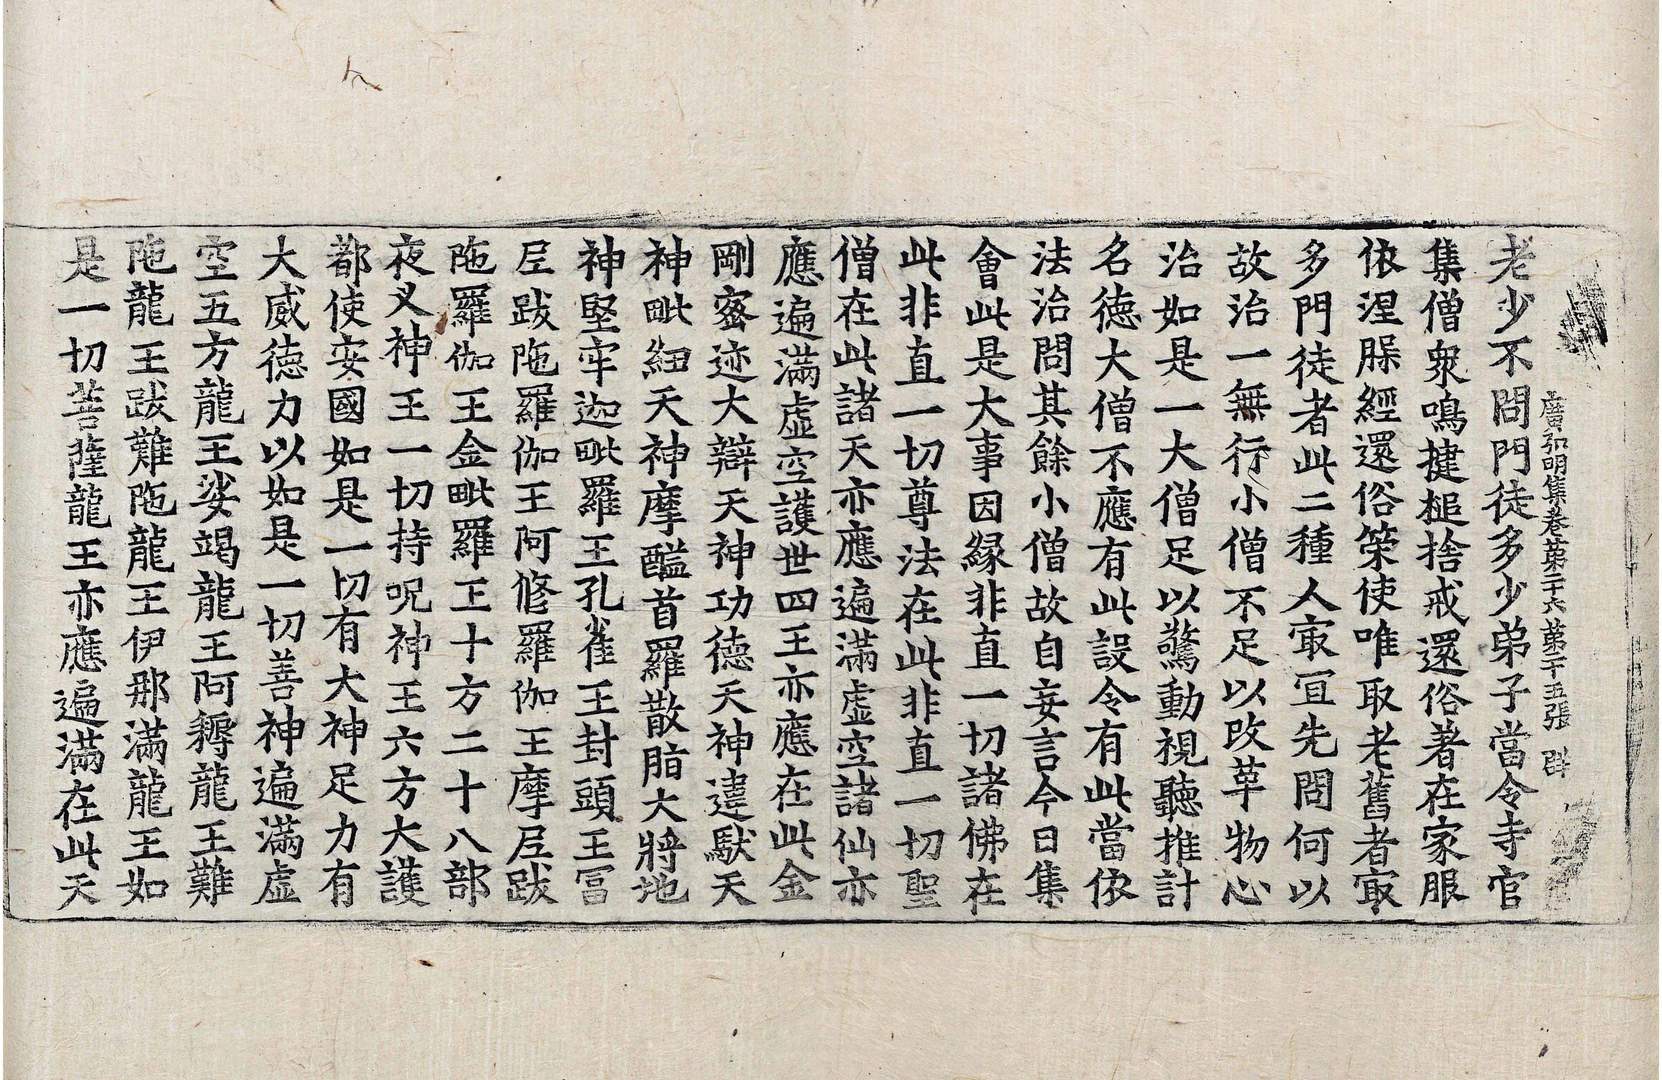 廣弘明集卷第二十六第二十五張 群
老少不問門徒多少弟子當令寺官
集僧衆鳴揵槌捨戒還俗著在家服
依涅槃經還俗策使唯取老舊者冣
多門徒者此二種人冣冝先問何以
故治一無行小僧不足以改革物心
治如是一大僧足以驚動視聽推計
名德大僧不應有此設令有此當依
法治問其餘小僧故自妄言今日集
會此是大事因縁非直一切諸佛在
此非直一切尊法在此非直一切聖
僧在此諸天亦應遍滿虛空諸仙亦
應遍滿虛空護世四王亦應在此金
剛密迹大辯天神功德天神違馱天
神毗紐天神摩醯首羅散脂大將地
神堅牢迦毗羅王孔雀王封頭王冨
尼跋陁羅伽王阿修羅伽王摩尼跋
陁羅伽王金毗羅王十方二十八部
夜叉神王一切持呪神王六方大護
都使安國如是一切有大神足力有
大威德力以如是一切善神遍滿虛
空五方龍王娑竭龍王阿耨龍王難
陁龍王跋難陁龍王伊那滿龍王如
是一切菩薩龍王亦應遍滿在此天